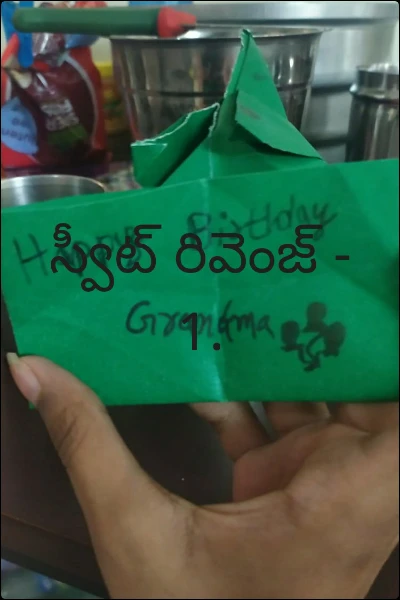 Happy Birthday
స్వీట్ రివెంజ్ -
Grandma
1.